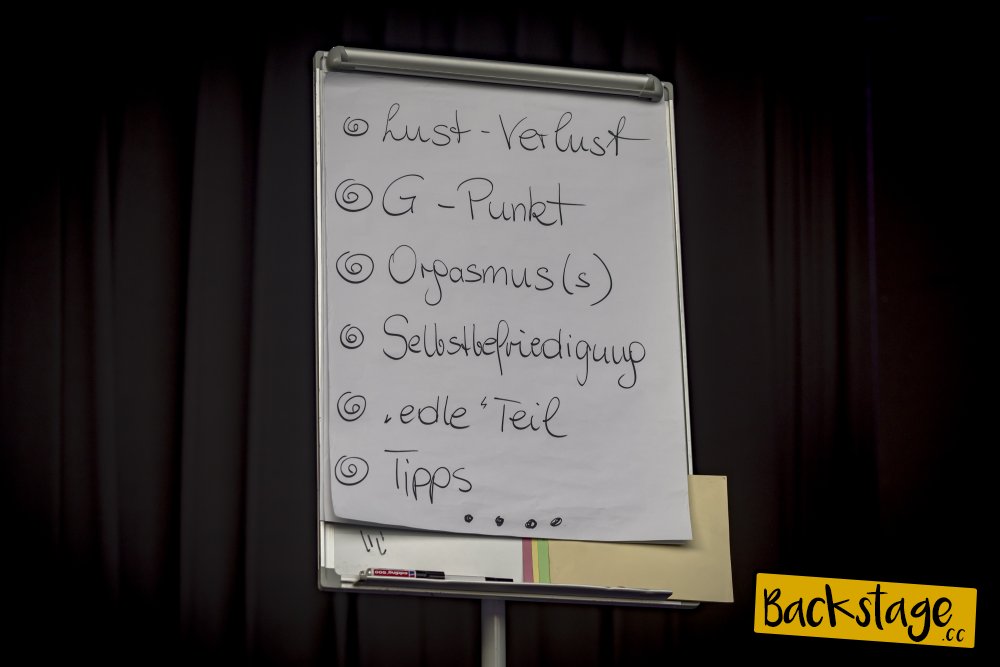 Lust-Verlust
G-Punkt
Orgasmus(s)
Selbstbefriedigung
„edle“ Teil
Tipps
....
Backstage
.cc